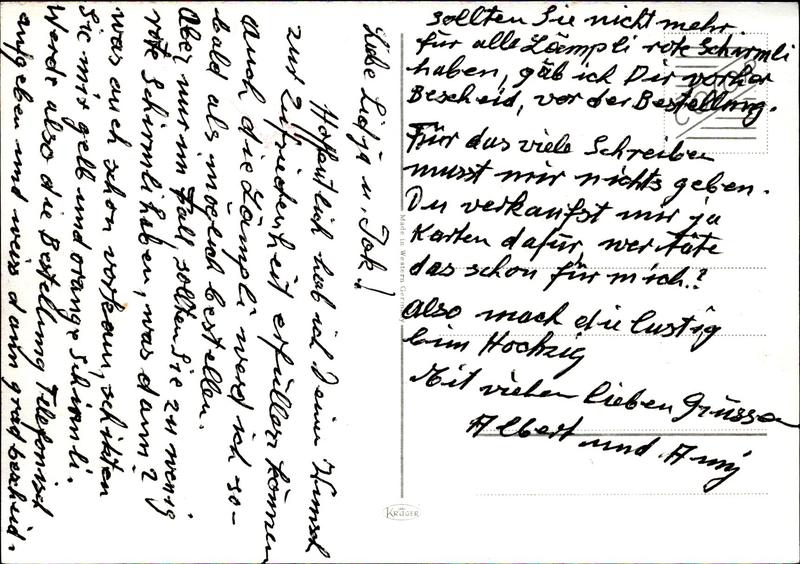 Liebe Lidja u. Jak!
Hoffentlich hab ich Deine Wunsch
zur Zufriedenheit erfüllen können
Auch die Lämpli werd ich so-
bald als möglich bestellen.
Aber, nur im Fall, sollten Sie zu wenig
rote Schirmli haben, was dann?
was auch schon vorkam, schikten
Sie mir gelb und orange Schirmli.
Werde also die Bestellung Telefonisch
aufgeben und weis dann grad bescheid.
sollten Sie nicht mehr
für alle Lämpli rote Schirmli
haben, gäb ich Dir vorher
Bescheid, vor der Bestellung.
Für das viele Schreiben
musst mir nichts geben.
Du verkaufst mir ja
Karten dafür, wer täte
das schon für mich?
Also mach die lustig
bim Hochzig
Mit vielen lieben Grüssen
Albert und Amy
Made in Western Germany
KRÜGER